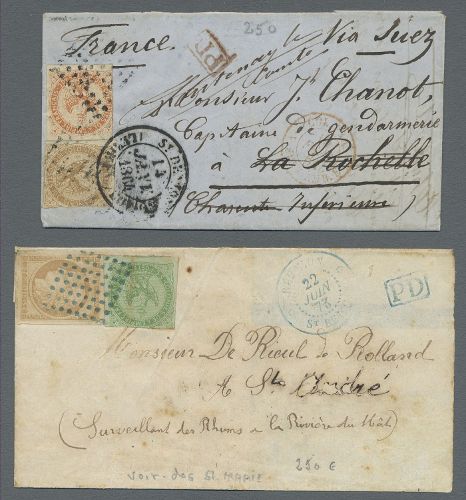 250
France Via Suez
PD
Monsieur Jh Chanot,
Capitaine de gendarmerie
à La Rochelle
(Charente Inférieure)
ST DENIS
14
JANV.
22
JUIN
73
ST
PD
Monsieur De Rieul de Rolland
A Ste André
(Surveillant des Rhums à la Rivière du Mât)
voir dos St. MARIE
250 €